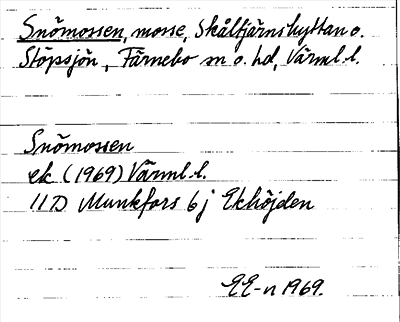 Snömossen, mosse, Skåltjärnshyttan o.
Stöpsjön, Färnebo sn o. hd, Värml. l.
Snömossen
ek (1969) Värml. l.
11D Munkfors 6j Ekhöjden
EE-n 1969.